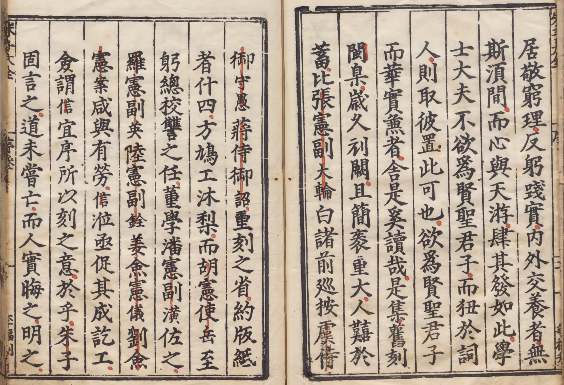 居敬窮理反躬踐實內外交養者無
斯須間而心與天游肆其發如此學
士大夫不欲爲賢聖君子而狃於詞
人則取彼置此可也欲爲賢聖君子
而華實兼者舍是奚讀哉是集舊刻
閩臬歲久刓闕且簡袠重大人囏於
蓄比張憲副大輪白諸前巡按虞侍
御守愚蔣侍御詔重刻之省約版紙
者什四方鳩工沐梨而胡憲使岳至
躬總校讐之任董學潘憲副潢佐之
羅憲副英陸憲副銓姜僉憲儀劉僉
憲案咸與有勞信涖亟促其成訖工
僉謂信宜序所以刻之意於乎朱子
固言之道未嘗亡而人實晦之明之